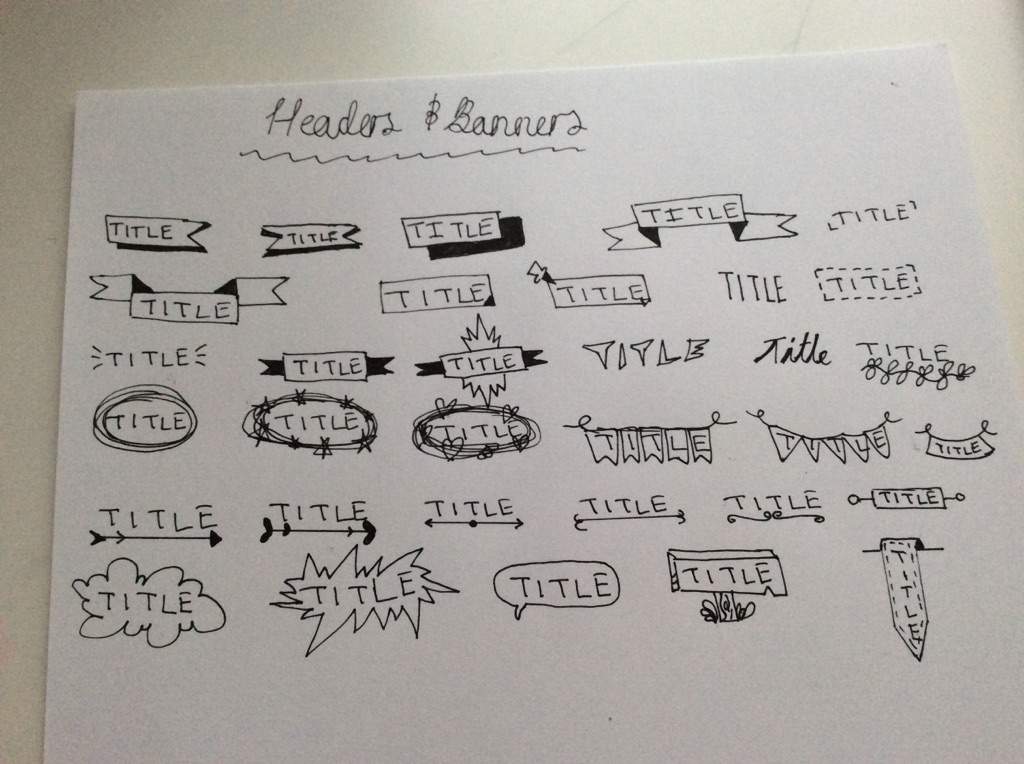 Headers & Banners
TITLE TITLE TITLE TITLE TITLE
TITLE TITLE TITLE TITLE TITLE
TITLE TITLE TITLE TITLE Title TITLE
TITLE TITLE TITLE TITLE TITLE TITLE
TITLE TITLE TITLE TITLE TITLE TITLE
TITLE TITLE TITLE TITLE TITLE